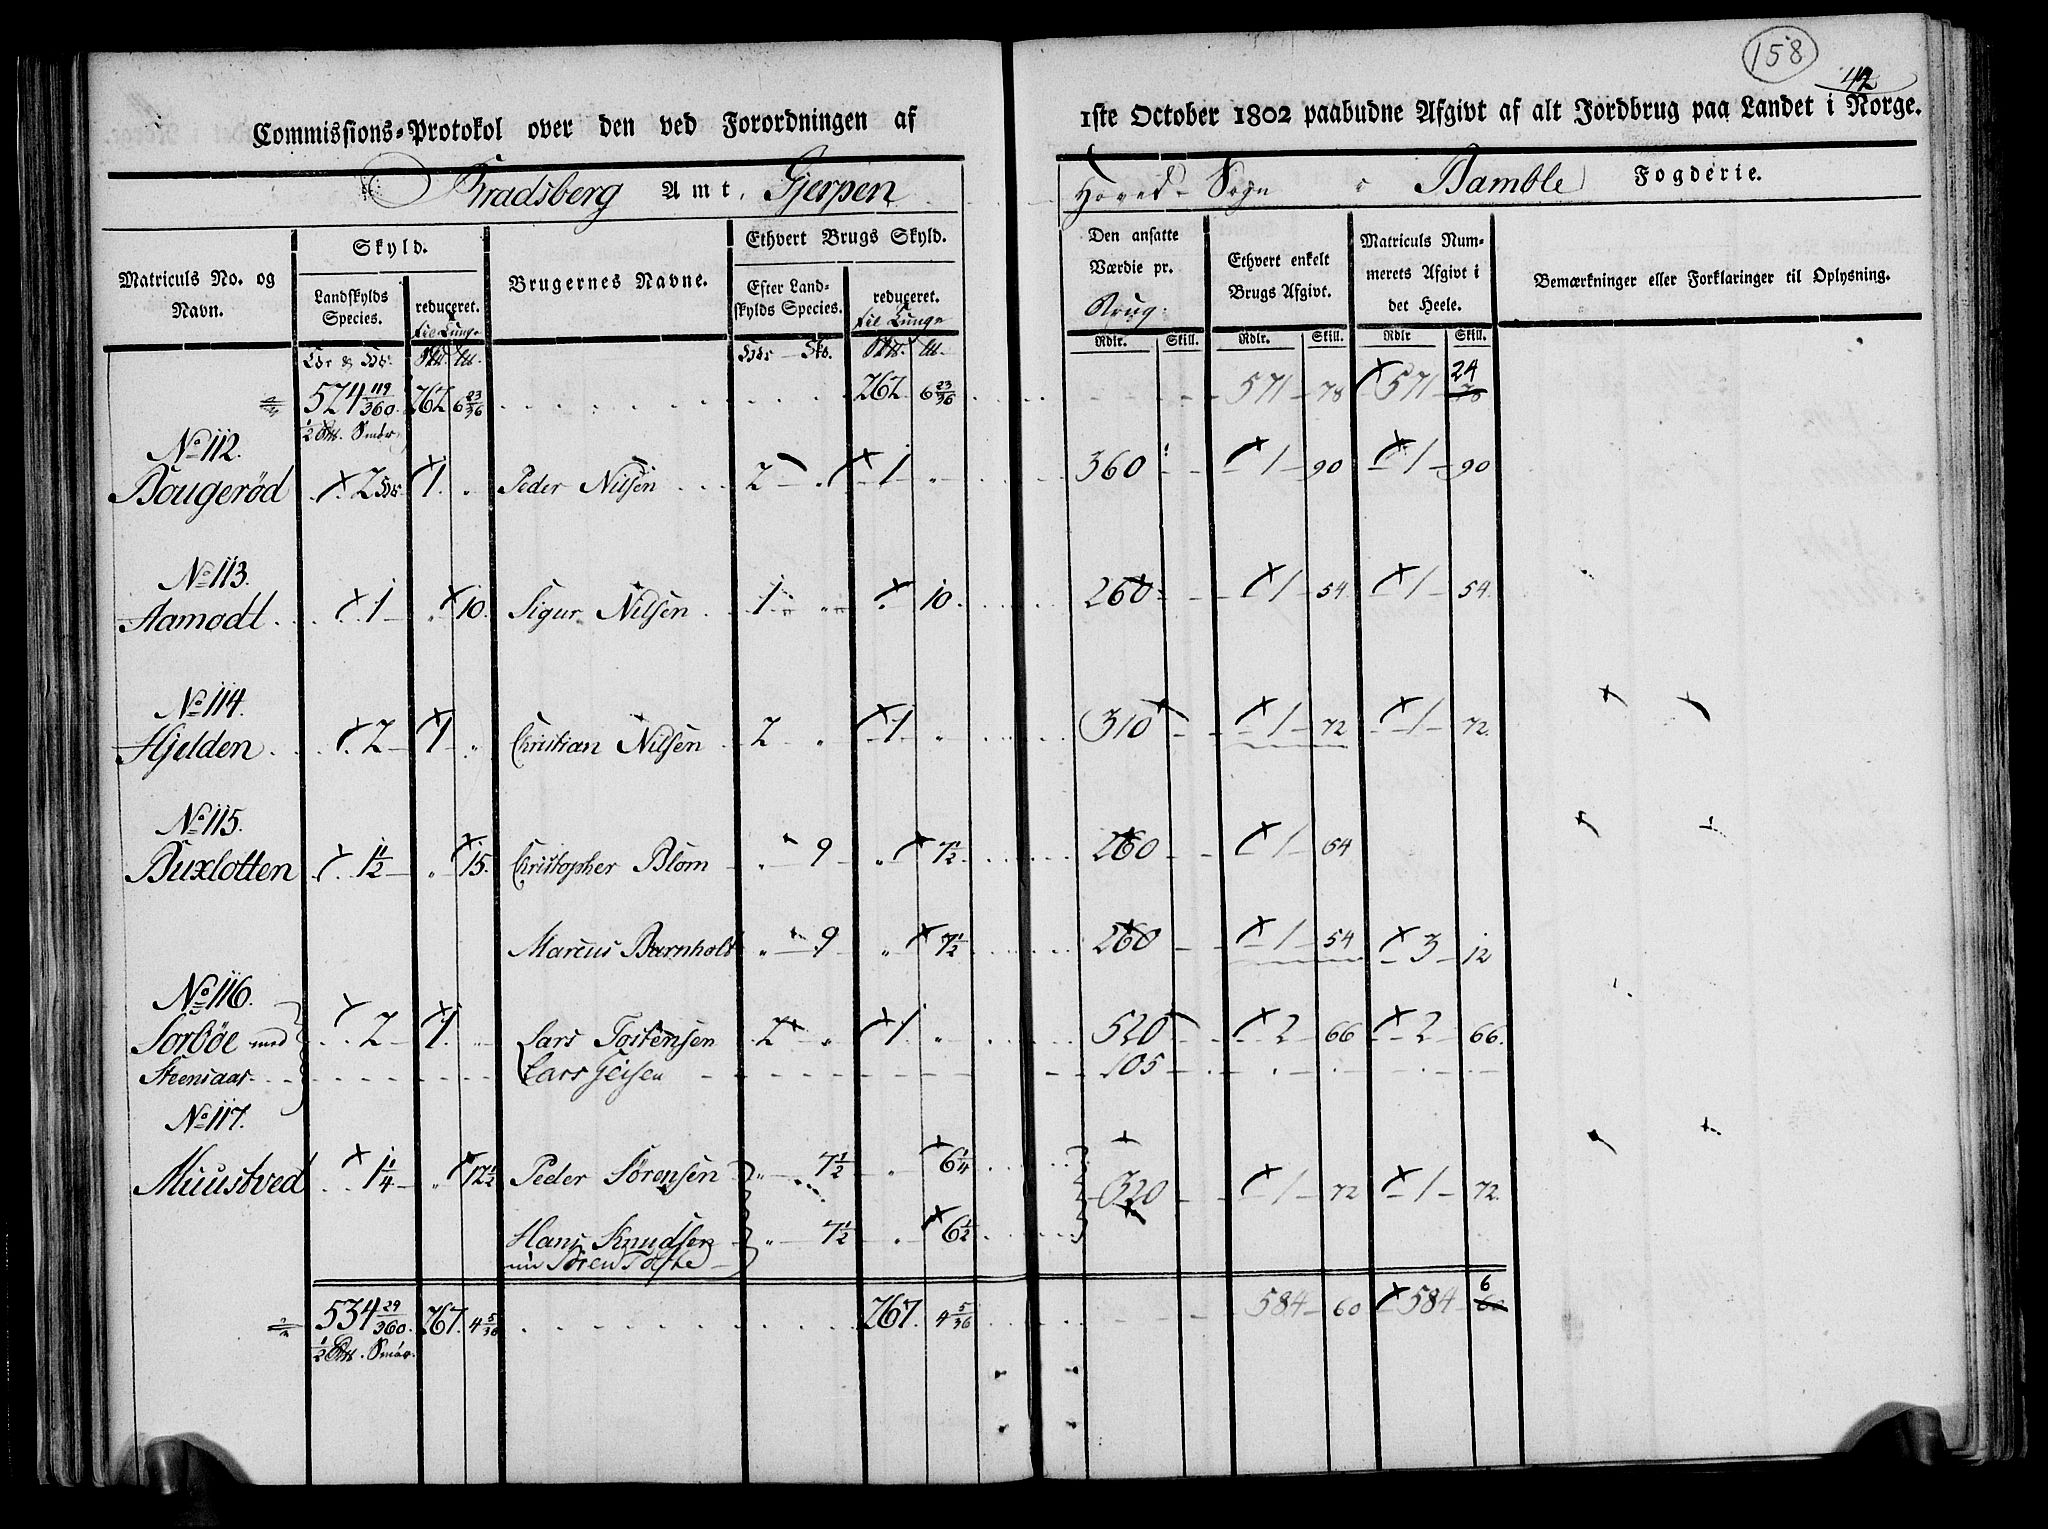 158
42
Commissions-Protokol over den ved Forordningen af 1ste October 1802 paabudne Afgivt af alt Jordbrug paa Landet i Norge.
Bradsberg Amt, Gjerpen Hoved-Sogn i Bamble Fogderie.
Matriculs No. og Navn.
Skyld.
Landskylds Species.
reduceret. til Tunge
Brugernes Navne.
Ethvert Brugs Skyld.
Efter Landskylds Species.
reduceret. til Tunge
Den ansatte Værdie pr. Brug.
Ethvert enkelt Brugs Afgivt.
Matriculs Nummerets Afgivt i det Heele.
Bemærkninger eller Forklaringer til Oplysning.
Rdlr. Skill. Rdlr. Skill. Rdlr Skill.
524 119/360 262 6 23/36 262 6 23/36 571 78 571 78 24
1/2 Smør
No 112.
Bougerød 2 1 " Peder Nilsen 2 " 1 " 360 1 90 1 90
No 113.
Aamodt 1 " 10 Sigur Nilsen 1 " " 10 260 1 54 1 54
No 114.
Hjelden 2 1 " Christian Nilsen 2 " 1 " 310 1 72 1 72
No 115.
Buxlotten 1 1/2 " 15 Christopher Blom " 9 " 7 1/2 260 1 54
Marcus Barnholt " 9 " 7 1/2 260 1 54 3 12
No 116.
Sorböe med 2 1 " Lars Tostensen 2 " 1 " 520 2 66 2 66
Steensaas Lars 105
No 117.
Muustved 1 1/4 " 12 1/2 Peder Sörensen " 7 1/2 " 6 1/4 320 1 72 1 72
Hans Knudsen " 7 1/2 " 6 1/2
nu Sören
534 29/360 267 4 5/36 267 4 5/36 584 60 584 60 6
1/2 Smør